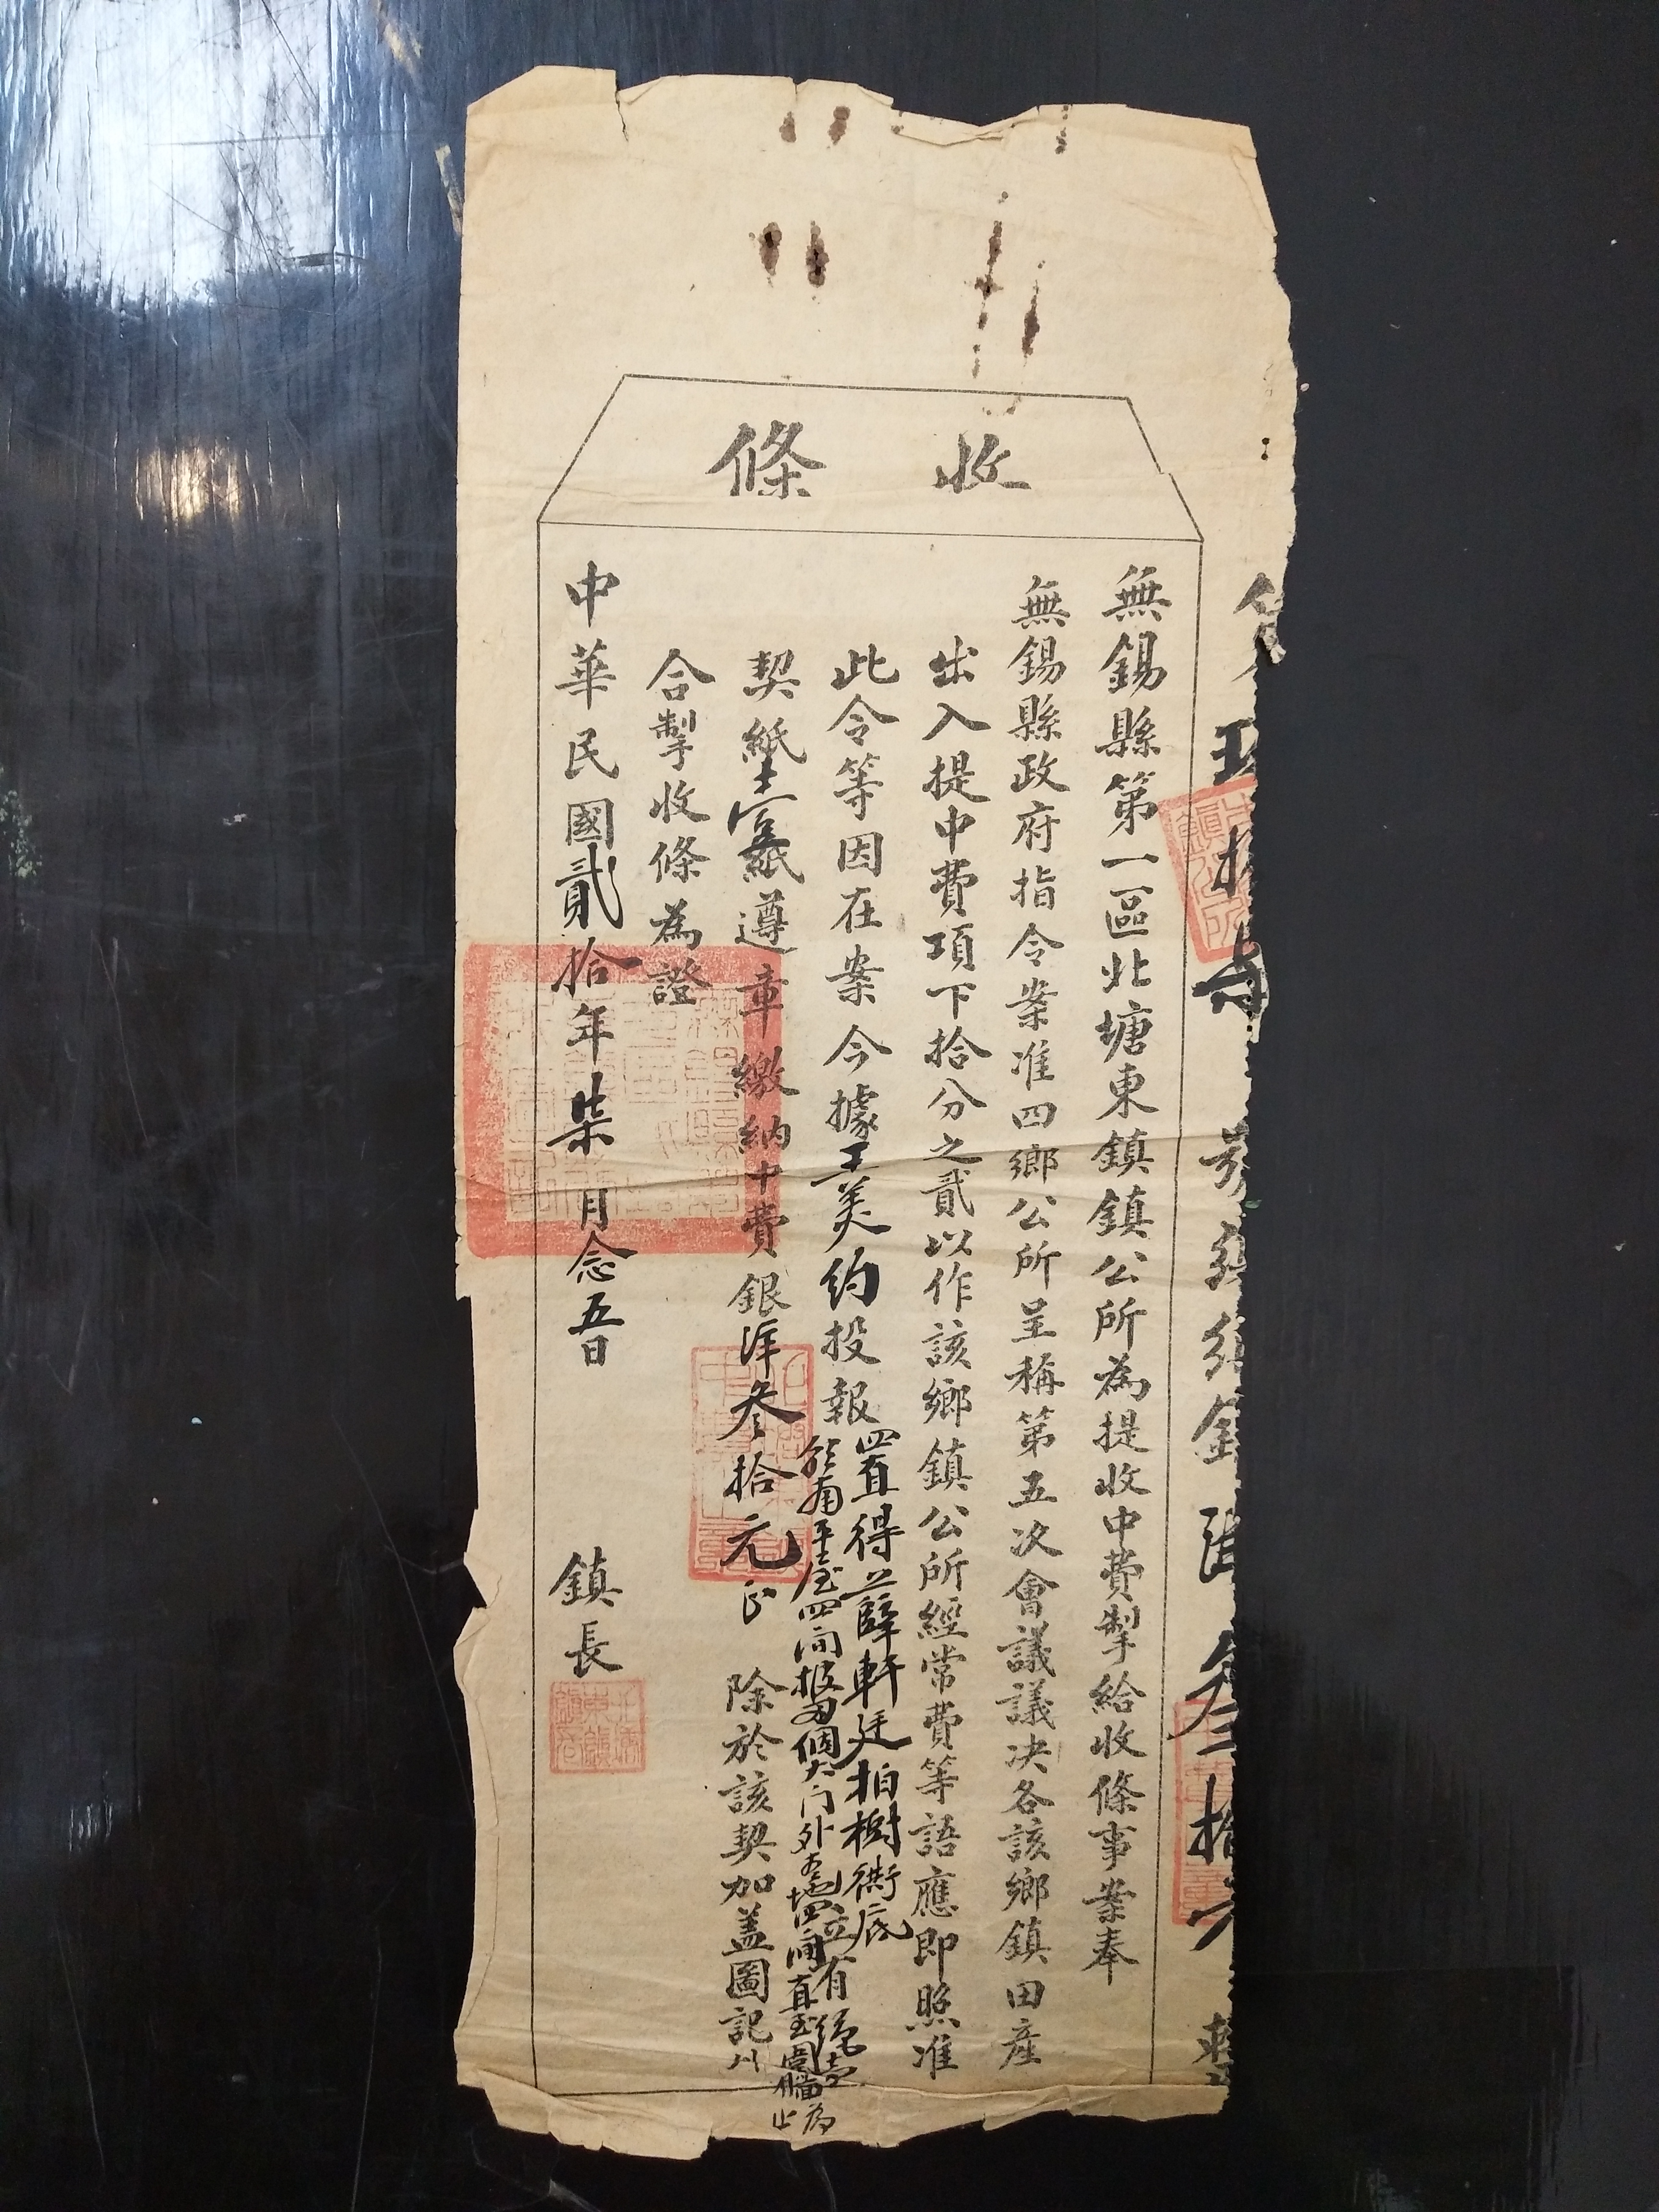 收條
無錫縣第一區北塘東鎮鎮公所為提收中費掣給收條事案奉
無錫縣政府指令案准四鄉公所呈稱第五次會議議决各該鄉鎮田產
出入提中費項下拾分之貳以作該鄉鎮公所經常費等語應即照准
此令等因在案今據王美約投報置得薛軒廷柏樹衖底
平屋四間披 個大门外 地四间直至圍牆為止
契紙壹紙遵章繳納中費銀洋叁拾元正 除於該契加盖圖記外
合掣收條為證
中華民國貳拾年柒月念五日 鎮長